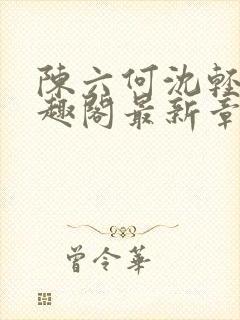 陳六何沈輕
趣閣最新章
曾令華